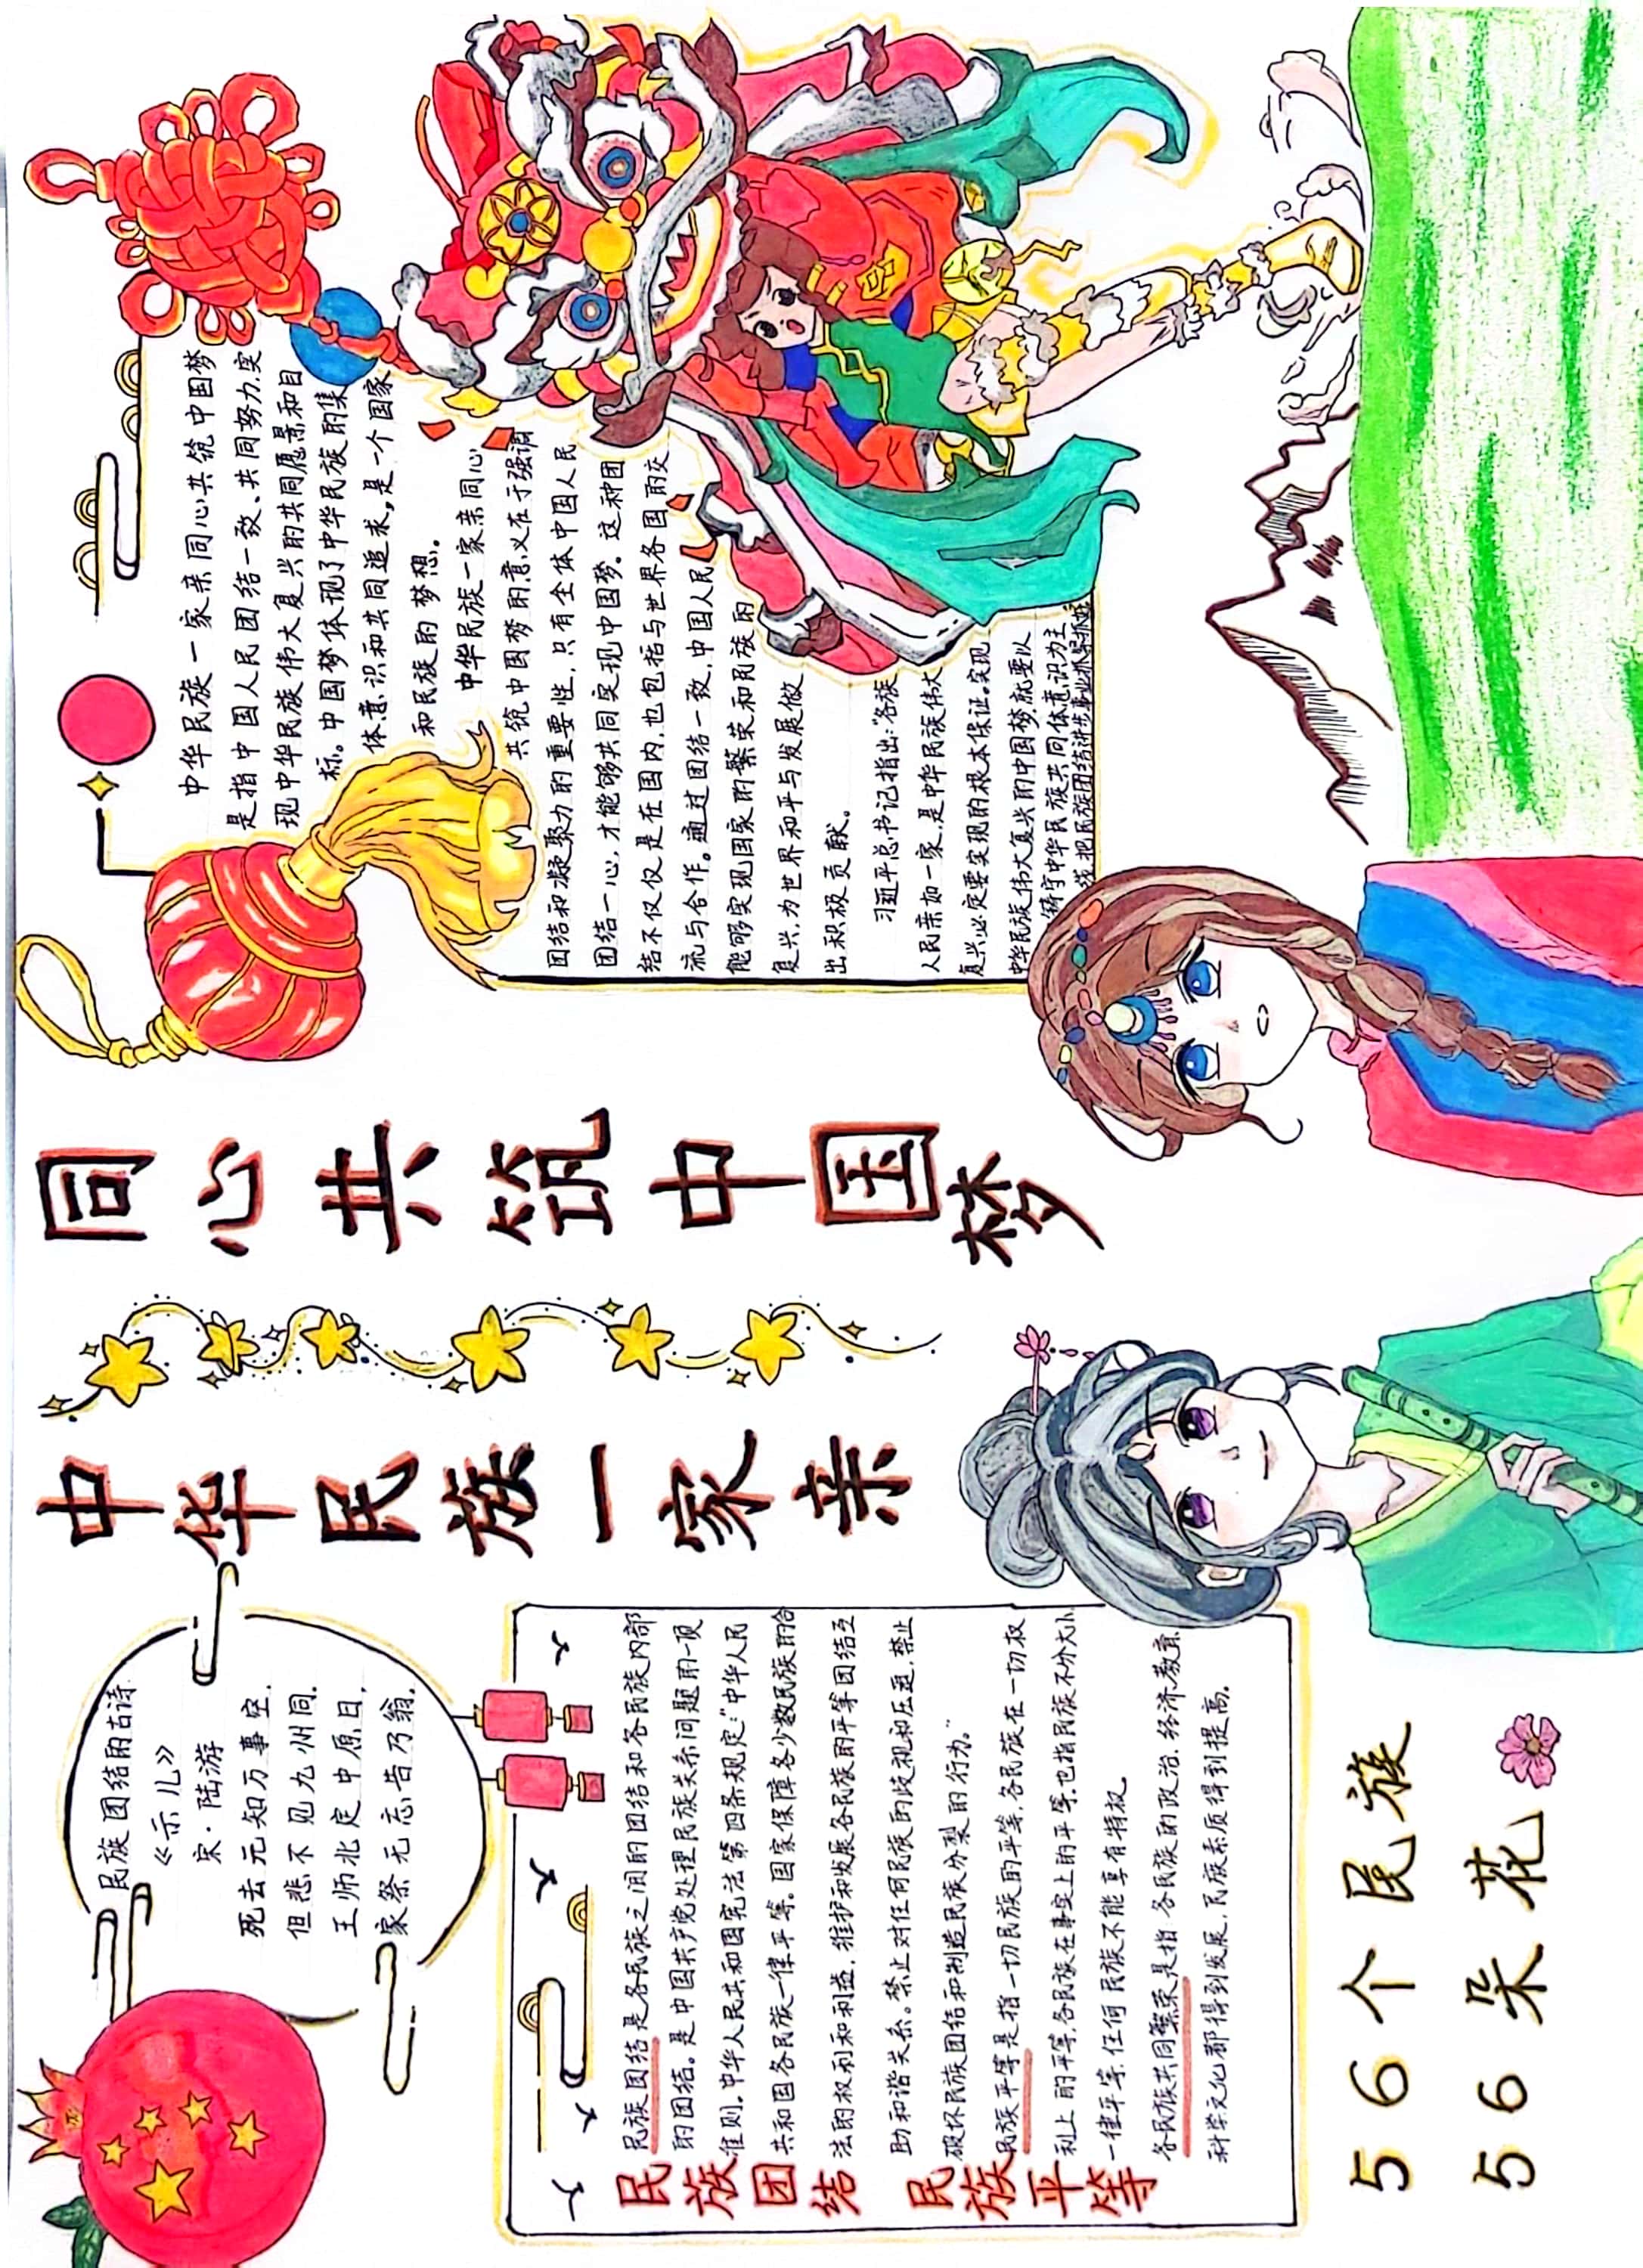 中华民族一家亲
同心共筑中国梦
民族团结的古诗
《示儿》
宋·陆游
死去元知万事空.
但悲不见九州同.
王师北定中原日,
家祭无忘告乃翁.
民族团结 民族平等
民族团结是各民族之间的团结和各民族内部
的团结。是中国共产党处理民族关系问题的一项
准则。中华人民共和国宪法第四条规定:“中华人民
共和国各民族一律平等。国家保障各少数民族的合
法的权利和利益,维护和发展各民族的平等团结互
助和谐关系。禁止对任何民族的歧视和压迫,禁止
破坏民族团结和制造民族分裂的行为。”
民族平等是指一切民族的平等,各民族在一切权
利上的平等,各民族在事实上的平等,也指民族不分大小
一律平等,任何民族不能享有特权。
各民族共同繁荣是指:各民族的政治、经济、教育、
科学文化都得到发展,民族素质得到提高。
56个民族
56朵花
中华民族一家亲同心共筑中国梦
是指中国人民团结一致、共同努力,实
现中华民族伟大复兴的共同愿景和目
标。中国梦体现了中华民族的集
体意识和共同追求,是一个国家
和民族的梦想。
中华民族一家亲同心
共筑中国梦的意义在于强调
团结和凝聚力的重要性,只有全体中国人民
团结一心,才能够共同实现中国梦。这种团
结不仅仅是在国内,也包括与世界各国的交
流与合作。通过团结一致,中国人民
能够实现国家的繁荣和民族的
复兴,为世界和平与发展做
出积极贡献。
习近平总书记指出:“各族
人民亲如一家,是中华民族伟大
复兴必定要实现的根本保证。实现
中华民族伟大复兴的中国梦就要以
铸牢中华民族共同体意识为主
线,把民族团结进步事业